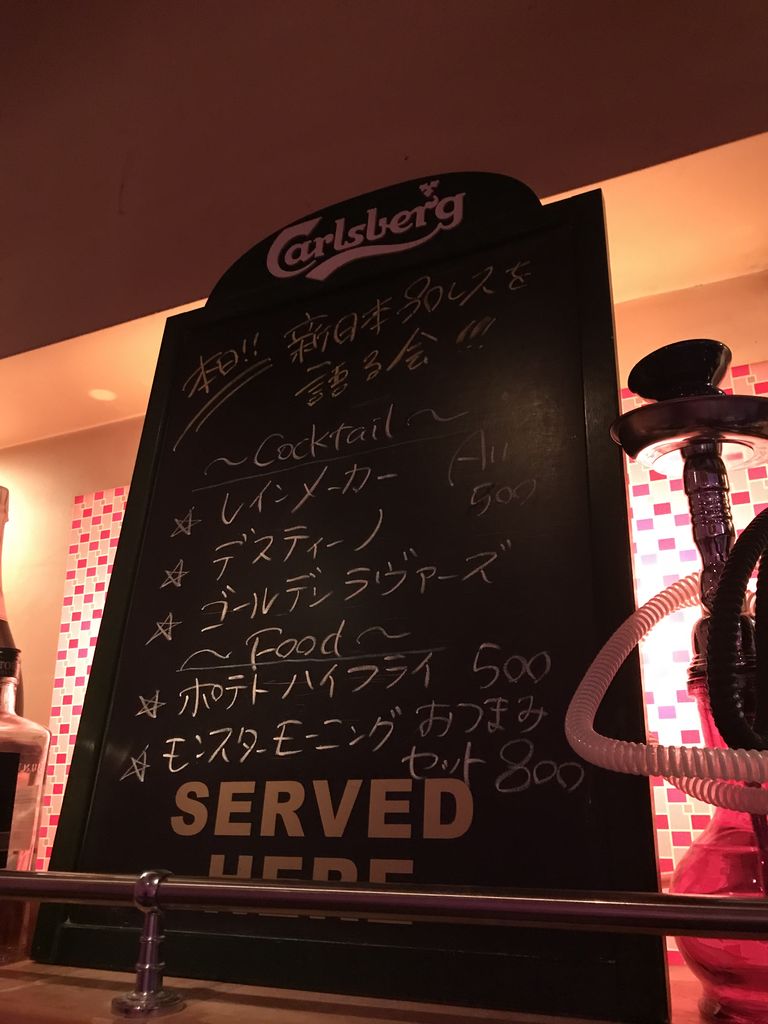 Carlsberg
本日!! 新日本プロレスを
語る会!!!
~Cocktail~
☆ レインメーカー All 500
☆ デスティーノ
☆ ゴールデンラヴァーズ
~Food~
☆ ポテトハイフライ 500
☆ モンスターモーニング おつまみ
セット 800
SERVED
HERE